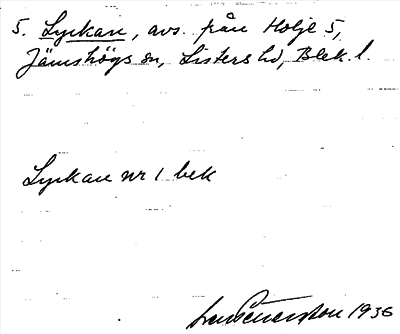 5. Lyckan, avs. från Holje 5,
Jämshögs sn, Listers hd, Blek. l.
Lyckan nr 1 bek
1936